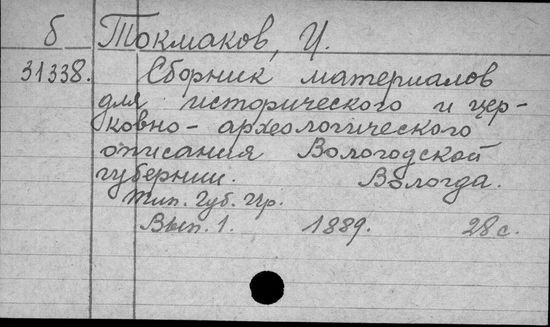 б Токмаков, И.
31338. Сборник материалов
для исторического и цер-
ковно-археологического
описания Вологодской
губернии. Вологда.
Тип. Губ. Пр.
Вып. 1. 1889. 28 с.